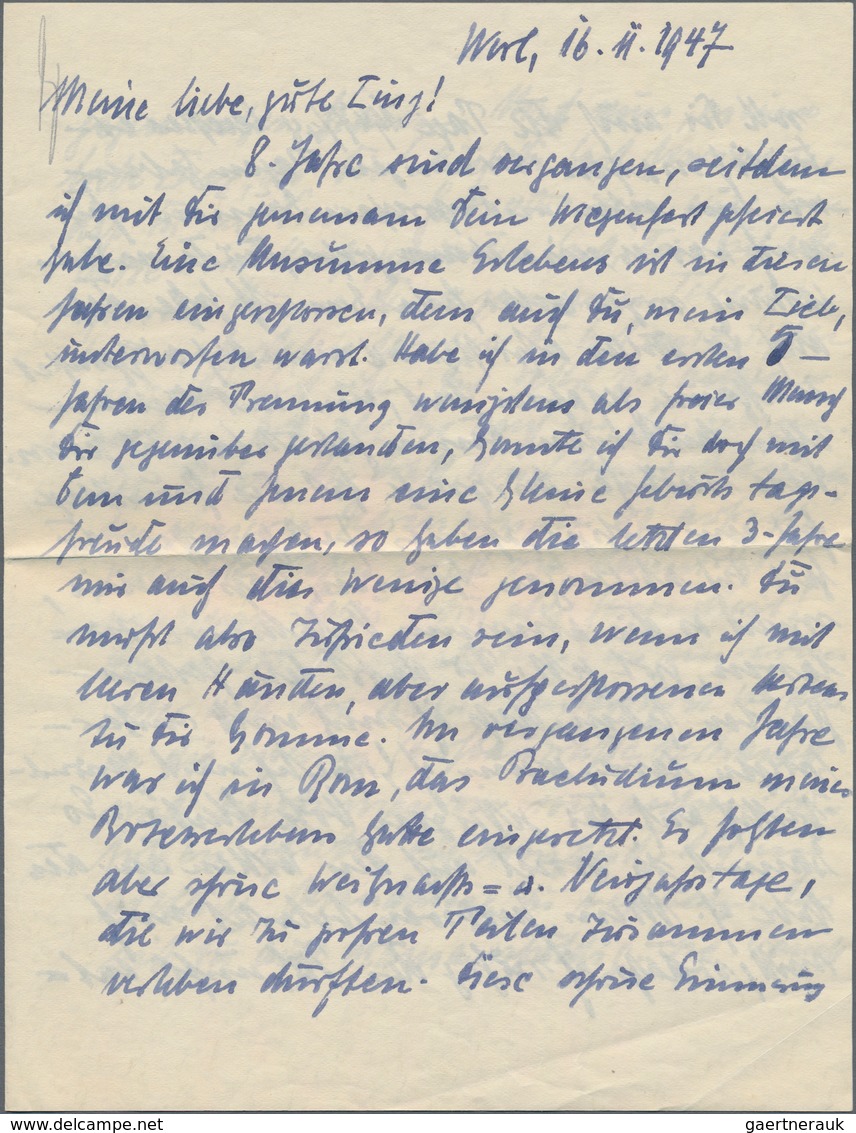 Werl, 16. II. 1947
Meine liebe, gute Lina!
8. Jahre sind vergangen, seitdem
ich mit Dir gemeinsam Dein Wiegenfest gefeiert
habe. Eine Unsumme Erlebens ist in diesen
Jahren eingeschlossen, dem auch Du, mein Lieb,
unterworfen warst. Habe ich in den ersten 5-
Jahren der Trennung wenigstens als freier Mensch
Dir gegenüber gestanden, konnte ich Dir doch mit
dem und jenem eine kleine Geburtstags-
freude machen, so haben die letzten 3-Jahre
mir auch dies Wenige genommen. Du
mußt also zufrieden sein, wenn ich mit
leeren Händen, aber aufgeschlossenen Herzens
zu Dir komme. Im vergangenen Jahre
war ich in Rom, das Praeludium meines
hatte eingesetzt. Es folgten
aber schöne Weihnachts= u. Neujahrstage,
die wir zu großen Teilen zusammen
verleben durften. Diese schöne Erinnerung
VERLEIHT.com
gaertnerauk